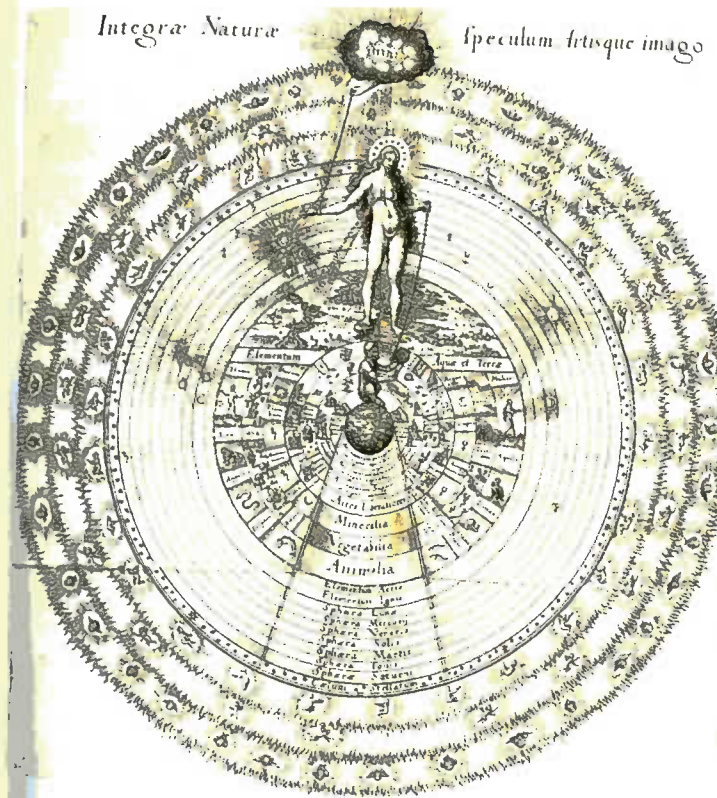 Integræ Naturæ speculum Artisque imago
Elementum Aquæ et Terræ
Artes Liberaliores
Mineralia
Vegetabilia
Animalia
Elementum Aeris
Elementum Ignis
Sphæra Lunæ
Sphæra Mercurij
Sphæra Veneris
Sphæra Solis
Sphæra Martis
Sphæra Jovis
Sphæra Saturni
Cælum Stellatum